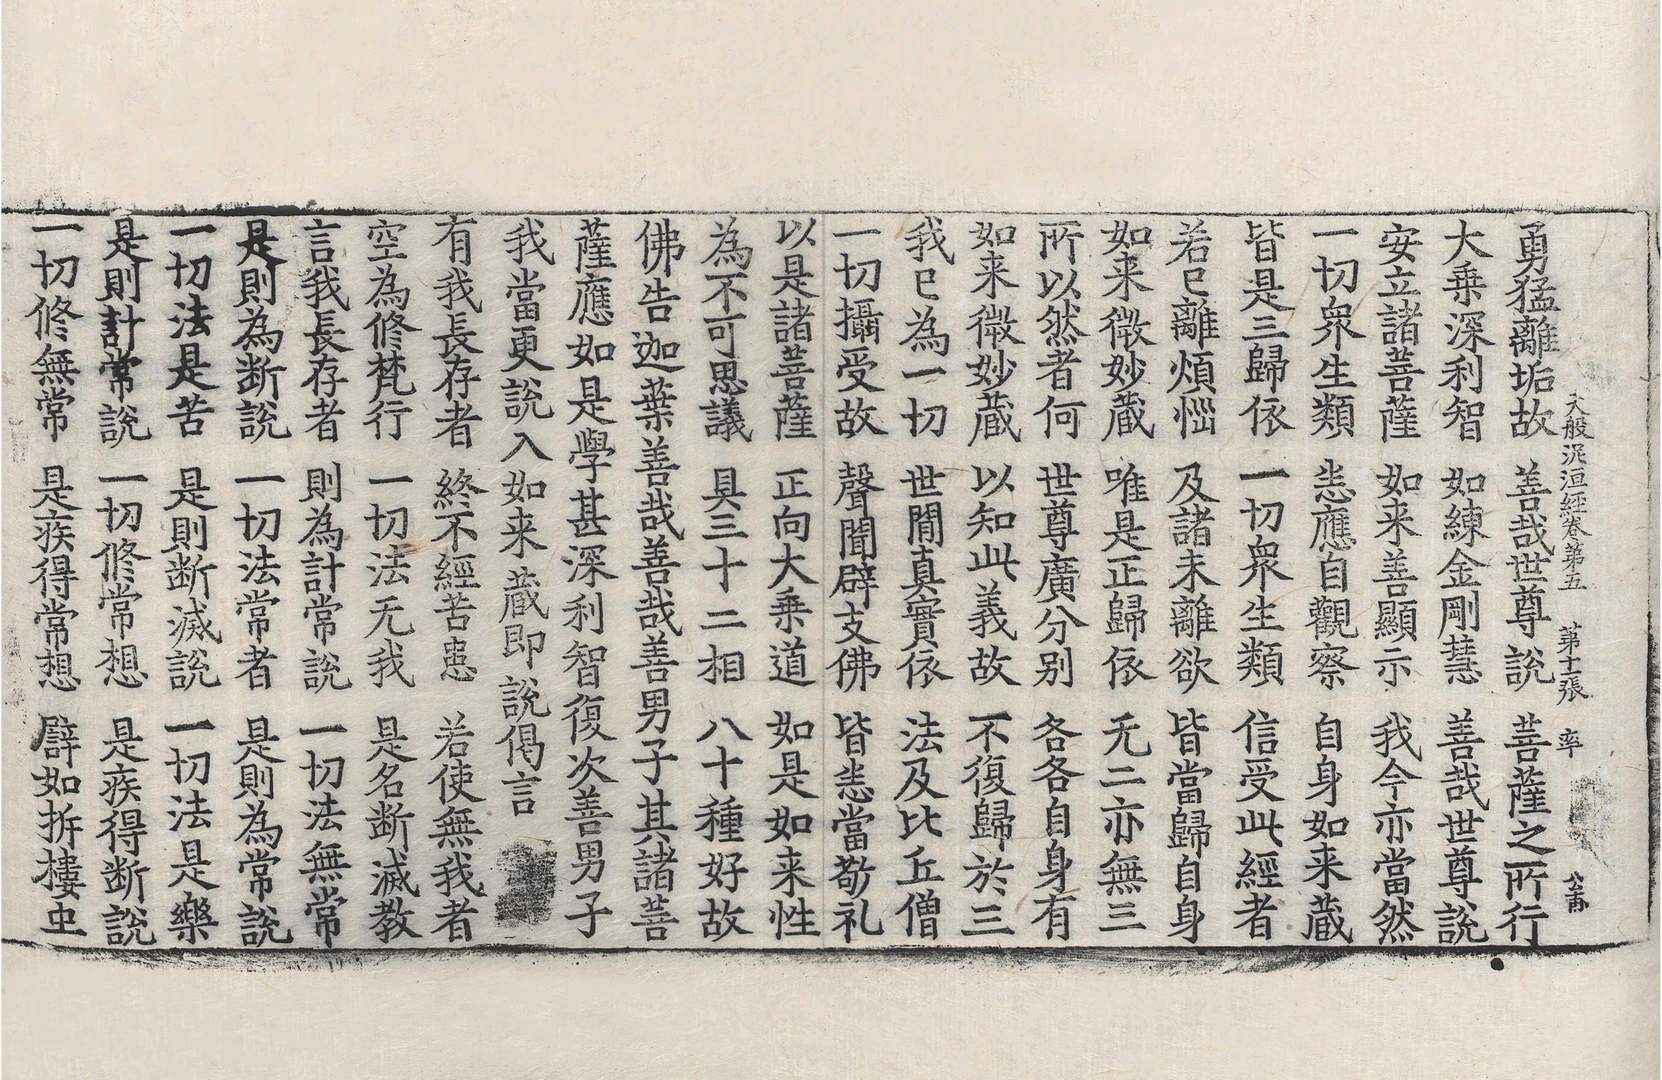 大般泥洹經卷第五　第十一張　率
勇猛離垢故　善哉世尊說　菩薩之所行
大乗深利智　如練金剛慧　善哉世尊說
安立諸菩薩　如来善顯示　我今亦當然
一切衆生類　悉應自觀察　自身如来蔵
皆是三歸依　一切衆生類　信受此經者
若已離煩惱　及諸未離欲　皆當歸自身
如来微妙蔵　唯是正歸依　无二亦無三
所以然者何　世尊廣分别　各各自身有
如来微妙蔵　以知此義故　不復歸於三
我已為一切　世間真實依　法及比丘僧
一切攝受故　聲聞辟支佛　皆悉當敬礼
以是諸菩薩　正向大乗道　如是如来性
為不可思議　具三十二相　八十種好故
佛告迦葉善哉善哉善男子其諸菩
薩應如是學甚深利智復次善男子
我當更說入如来蔵即說偈言
有我長存者　終不經苦患　若使無我者
空為修梵行　一切法无我　是名断滅教
言我長存者　則為計常說　一切法無常
是則為断說　一切法常者　是則為常說
一切法是苦　是則断滅說　一切法是樂
是則計常說　一切修常想　是疾得断說
一切修無常　是疾得常想　譬如折樓虫